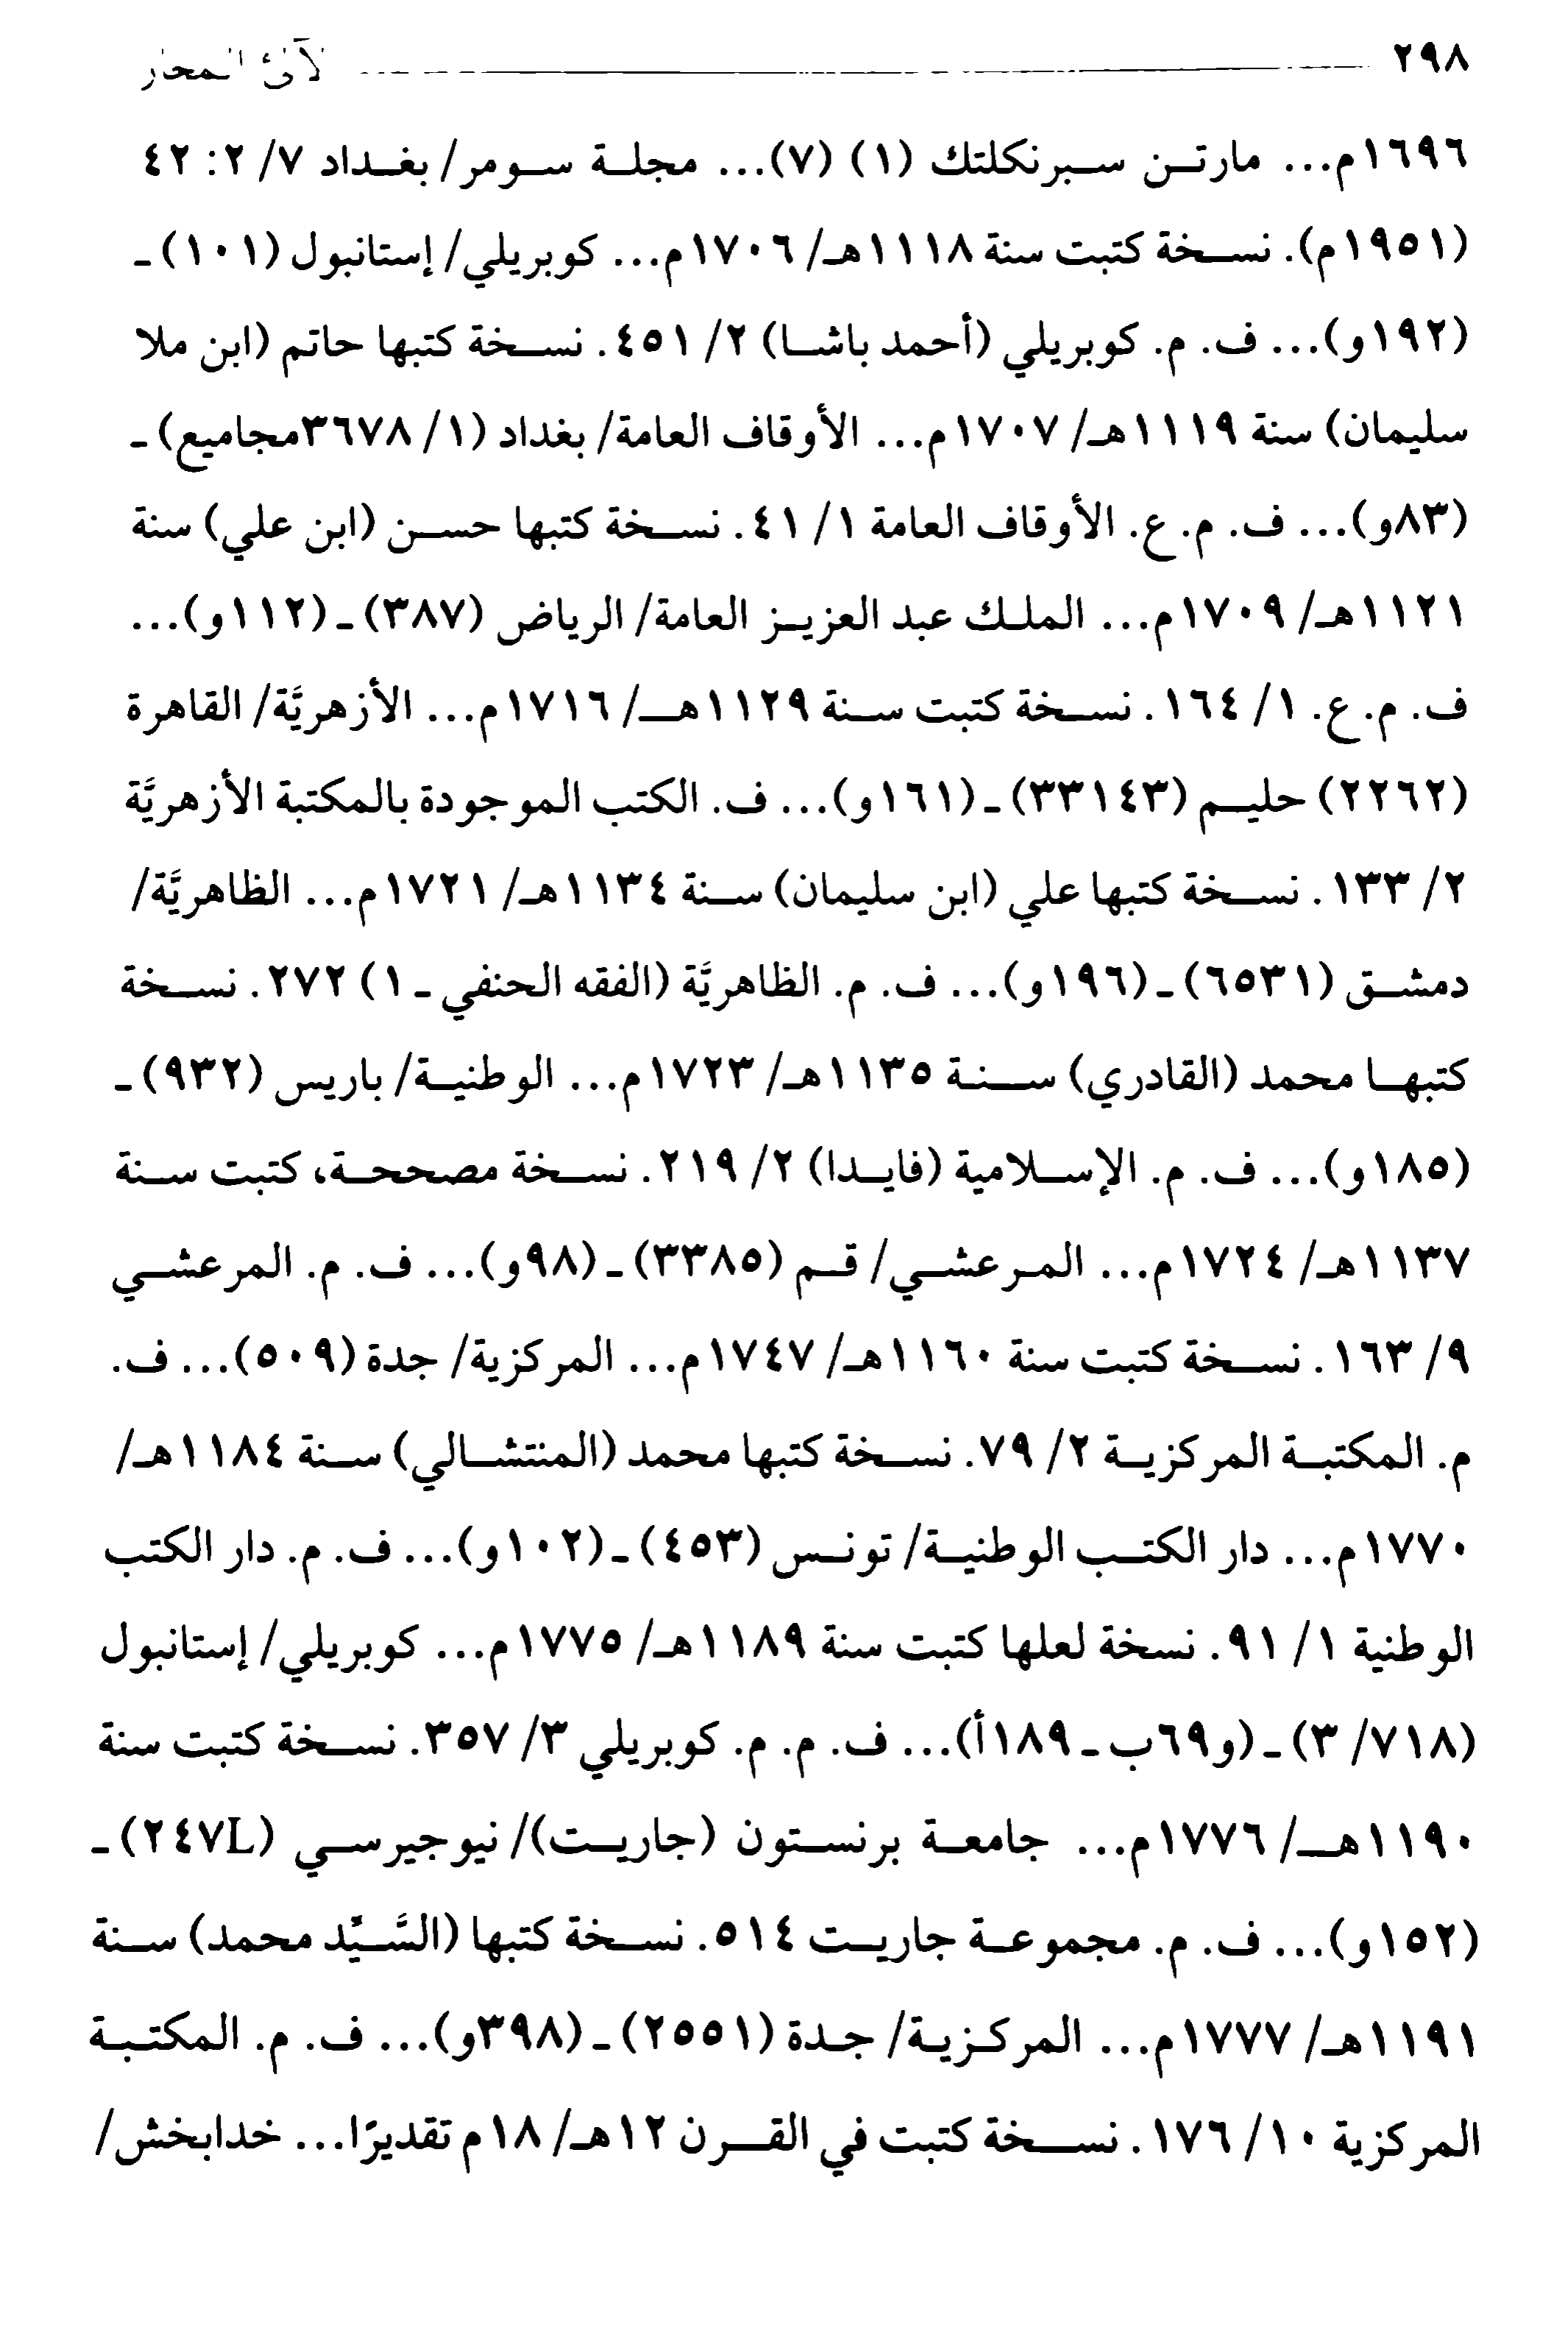 ٢٩٨ لآلئ المحار
١٦٩٦م... مارتن سبرنكلتك (١) (٧)... مجلة سومر/ بغداد ٧/ ٢: ٤٢
(١٩٥١م). نسخة كتبت سنة ١١١٨هـ/ ١٧٠٦م... كوبريلي/ إستانبول (١٠١) -
(١٩٢و)... ف. م. كوبريلي (أحمد باشا) ٢/ ٤٥١. نسخة كتبها حاتم (ابن ملا
سليمان) سنة ١١١٩هـ/ ١٧٠٧م... الأوقاف العامة/ بغداد (١/ ٣٦٧٨مجاميع) -
(٨٣و)... ف. م. ع. الأوقاف العامة ١/ ٤١. نسخة كتبها حسن (ابن علي) سنة
١١٢١هـ/ ١٧٠٩م... الملك عبد العزيز العامة/ الرياض (٣٨٧) - (١١٢و)...
ف. م. ع. ١/ ١٦٤. نسخة كتبت سنة ١١٢٩هـ/ ١٧١٦م... الأزهريَّة/ القاهرة
(٢٢٦٢) حليم (٣٣١٤٣) - (١٦١و)... ف. الكتب الموجودة بالمكتبة الأزهريَّة
٢/ ١٣٣. نسخة كتبها علي (ابن سليمان) سنة ١١٣٤هـ/ ١٧٢١م... الظاهريَّة/
دمشق (٦٥٣١) - (١٩٦و)... ف. م. الظاهريَّة (الفقه الحنفي - ١) ٢٧٢. نسخة
كتبها محمد (القادري) سنة ١١٣٥هـ/ ١٧٢٣م... الوطنية/ باريس (٩٣٢) -
(١٨٥و)... ف. م. الإسلامية (فايدا) ٢/ ٢١٩. نسخة مصححة، كتبت سنة
١١٣٧هـ/ ١٧٢٤م... المرعشي/ قم (٣٣٨٥) - (٩٨و)... ف. م. المرعشي
٩/ ١٦٣. نسخة كتبت سنة ١١٦٠هـ/ ١٧٤٧م... المركزية/ جدة (٥٠٩)... ف.
م. المكتبة المركزية ٢/ ٧٩. نسخة كتبها محمد (المنتشالي) سنة ١١٨٤هـ/
١٧٧٠م... دار الكتب الوطنية/ تونس (٤٥٣) - (١٠٢و)... ف. م. دار الكتب
الوطنية ١/ ٩١. نسخة لعلها كتبت سنة ١١٨٩هـ/ ١٧٧٥م... كوبريلي/ إستانبول
(٧١٨/ ٣) - (و٦٩ب - ١٨٩أ)... ف. م. م. كوبريلي ٣/ ٣٥٧. نسخة كتبت سنة
١١٩٠هـ/ ١٧٧٦م... جامعة برنستون (جاريت)/ نيوجيرسي (٢٤٧L) -
(١٥٢و)... ف. م. مجموعة جاريت ٥١٤. نسخة كتبها (السَّيِّد محمد) سنة
١١٩١هـ/ ١٧٧٧م... المركزية/ جدة (٢٥٥١) - (٣٩٨و)... ف. م. المكتبة
المركزية ١٠/ ١٧٦. نسخة كتبت في القرن ١٢هـ/ ١٨م تقديرًا... خدابخش/